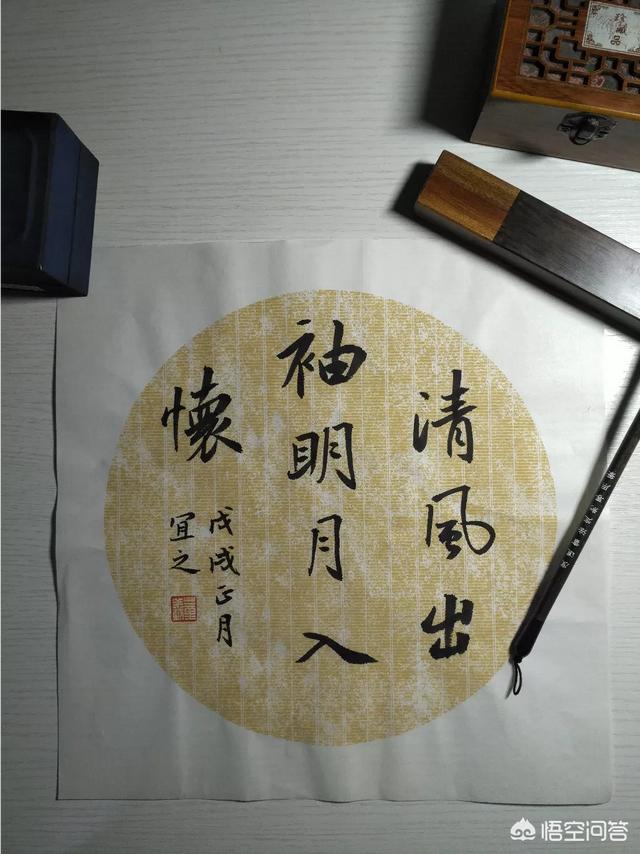 清風出
袖明月入
懷
戊戌正月
宜之
珍藏品
悟空问答